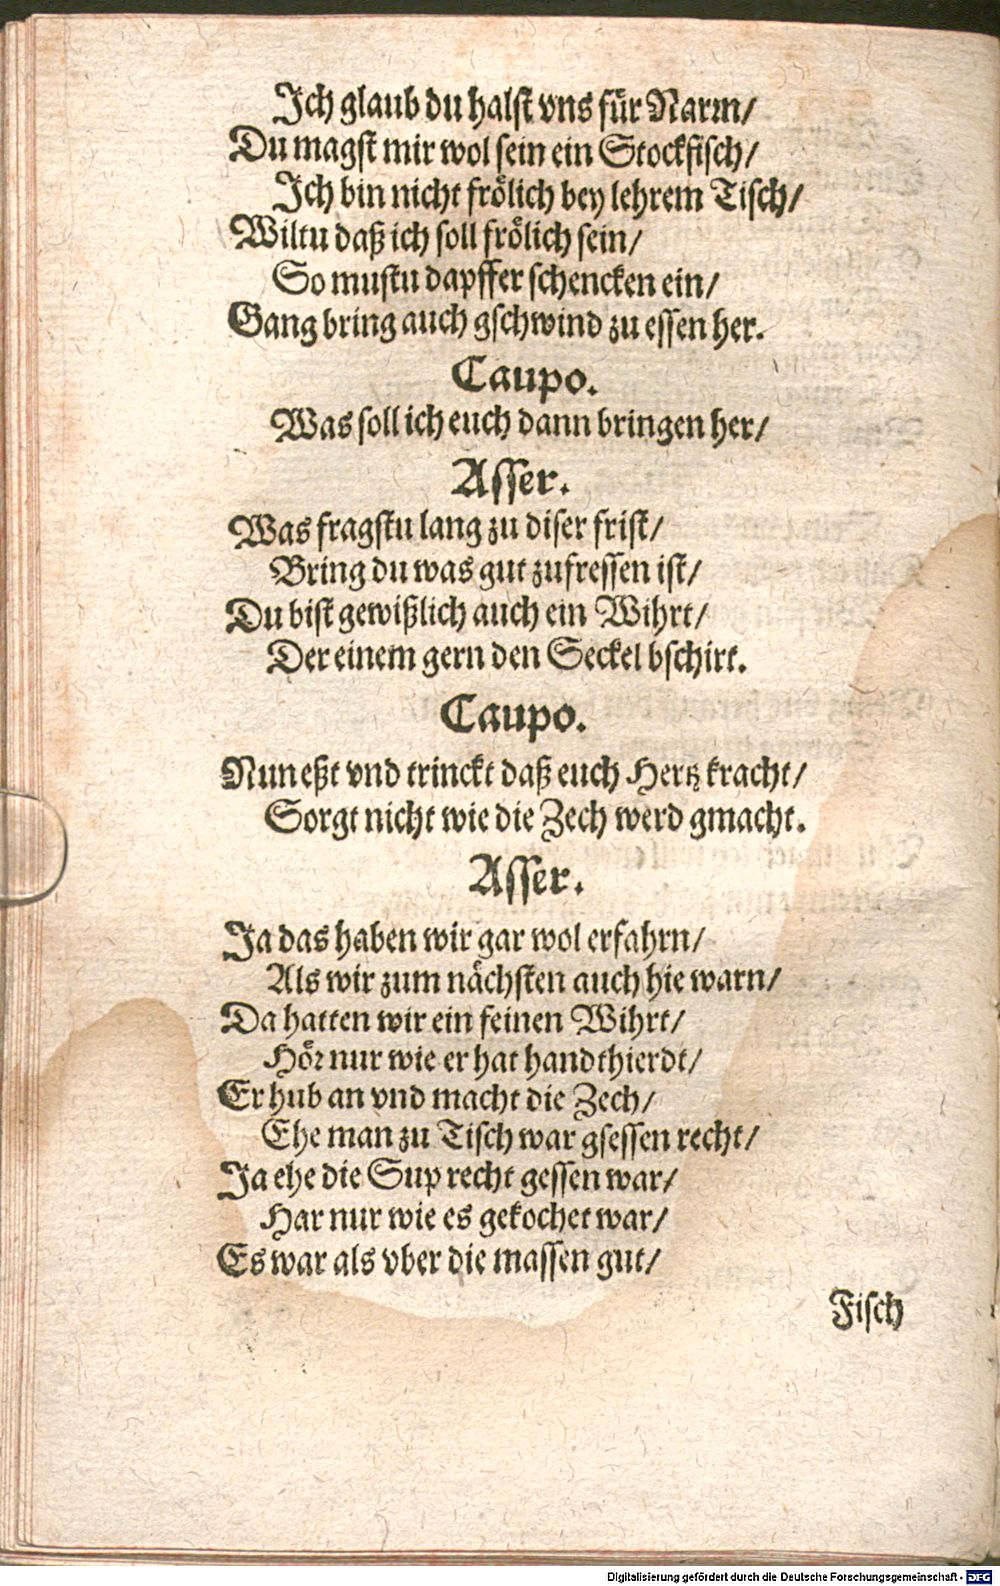 Ich glaub du halst vns für Narrn/
Du magst mir wol sein ein Stockfisch/
Ich bin nicht frölich bey lehrem Tisch/
Wiltu daß ich soll frölich sein/
So mustu dapffer schencken ein/
Gang bring auch gschwind zu essen her.
Caupo.
Was soll ich euch dann bringen her/
Asser.
Was fragstu lang zu diser frist/
Bring du was gut zufressen ist/
Du bist gewißlich auch ein Wihrt/
Der einem gern den Seckel bschirt.
Caupo.
Nun eßt vnd trinckt daß euch Hertz kracht/
Sorgt nicht wie die Zech werd gmacht.
Asser.
Ja das haben wir gar wol erfahrn/
Als wir zum nächsten auch hie warn/
Da hatten wir ein feinen Wihrt/
Hör nur wie er hat handthierdt/
Er hub an vnd macht die Zech/
Ehe man zu Tisch war gsessen recht/
Ja ehe die Sup recht gessen war/
Har nur wie es gekochet war/
Es war als vber die massen gut/
Fisch
Digitalisierung gefördert durch die Deutsche Forschungsgemeinschaft - DFG